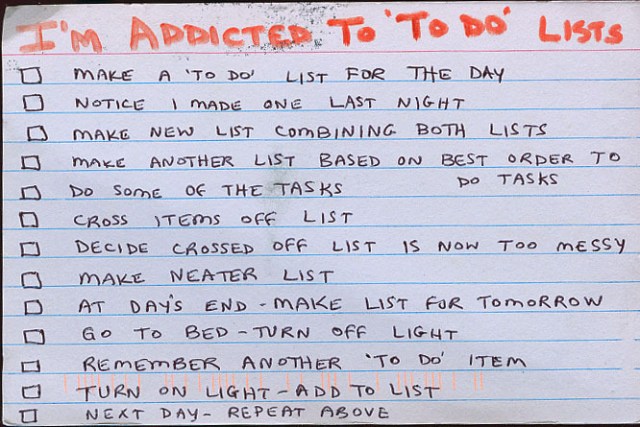 I'M ADDICTED TO 'TO DO' LISTS
MAKE A 'TO DO' LIST FOR THE DAY
NOTICE I MADE ONE LAST NIGHT
MAKE NEW LIST COMBINING BOTH LISTS
MAKE ANOTHER LIST BASED ON BEST ORDER TO
DO TASKS
DO SOME OF THE TASKS
CROSS ITEMS OFF LIST
DECIDE CROSSED OFF LIST IS NOW TOO MESSY
MAKE NEATER LIST
AT DAY'S END - MAKE LIST FOR TOMORROW
GO TO BED - TURN OFF LIGHT
REMEMBER ANOTHER 'TO DO' ITEM
TURN ON LIGHT - ADD TO LIST
NEXT DAY - REPEAT ABOVE